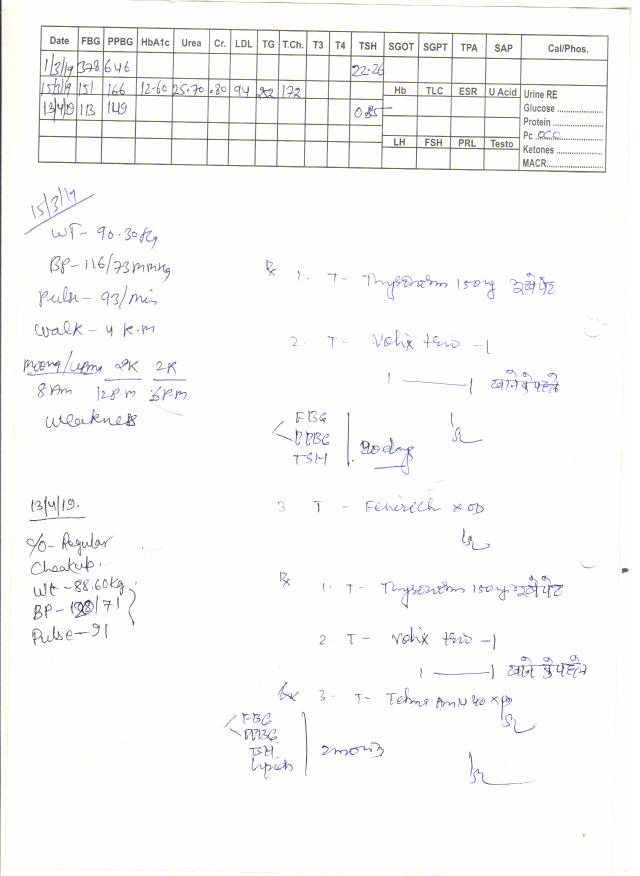 Date FBG PPBG HbA1c Urea Cr. LDL TG T.Ch. T3 T4 TSH SGOT SGPT TPA SAP Cal/Phos.
1/3/19 378 646 22.26
15/3/19 151 166 12.60 25.70 .80 94 172
13/4/19 113 149 0.85
Hb TLC ESR U Acid
LH FSH PRL Testo
Urine RE
Glucose
Protein
Pc
Ketones
MACR
15/3/19
WT - 90.30Kg
BP - 116/73mmHg
Pulse - 93/min
Walk - 4 K.M
8 Am 12P.M 6P.M
Weakness
Rx 1. T - Thyronorm 150mg खाली पेट
2. T - Volix trio - 1
1 — 1 खाने से पहले
FBG
PPBG
TSH
20 days
3. T - × OD
13/4/19.
C/O - Regular
Checkup.
Wt - 88.60kg
BP - /71
Pulse - 91
Rx 1. T - Thyronorm 150mg खाली पेट
2 T - Volix trio - 1
1 — 1 खाने से पहले
3 - T - Telma Am H 40 ×
FBG
PPBG
TSH
Lipids